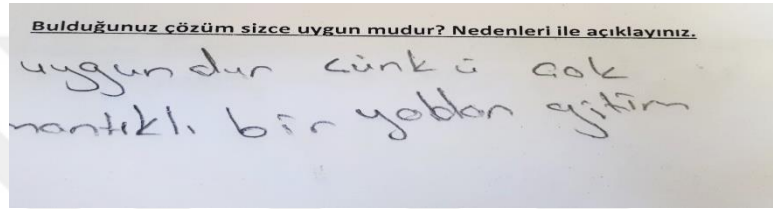 Bulduğunuz çözüm sizce uygun mudur? Nedenleri ile açıklayınız.
uygundur çünkü çok
mantıklı bir yoldan gitim